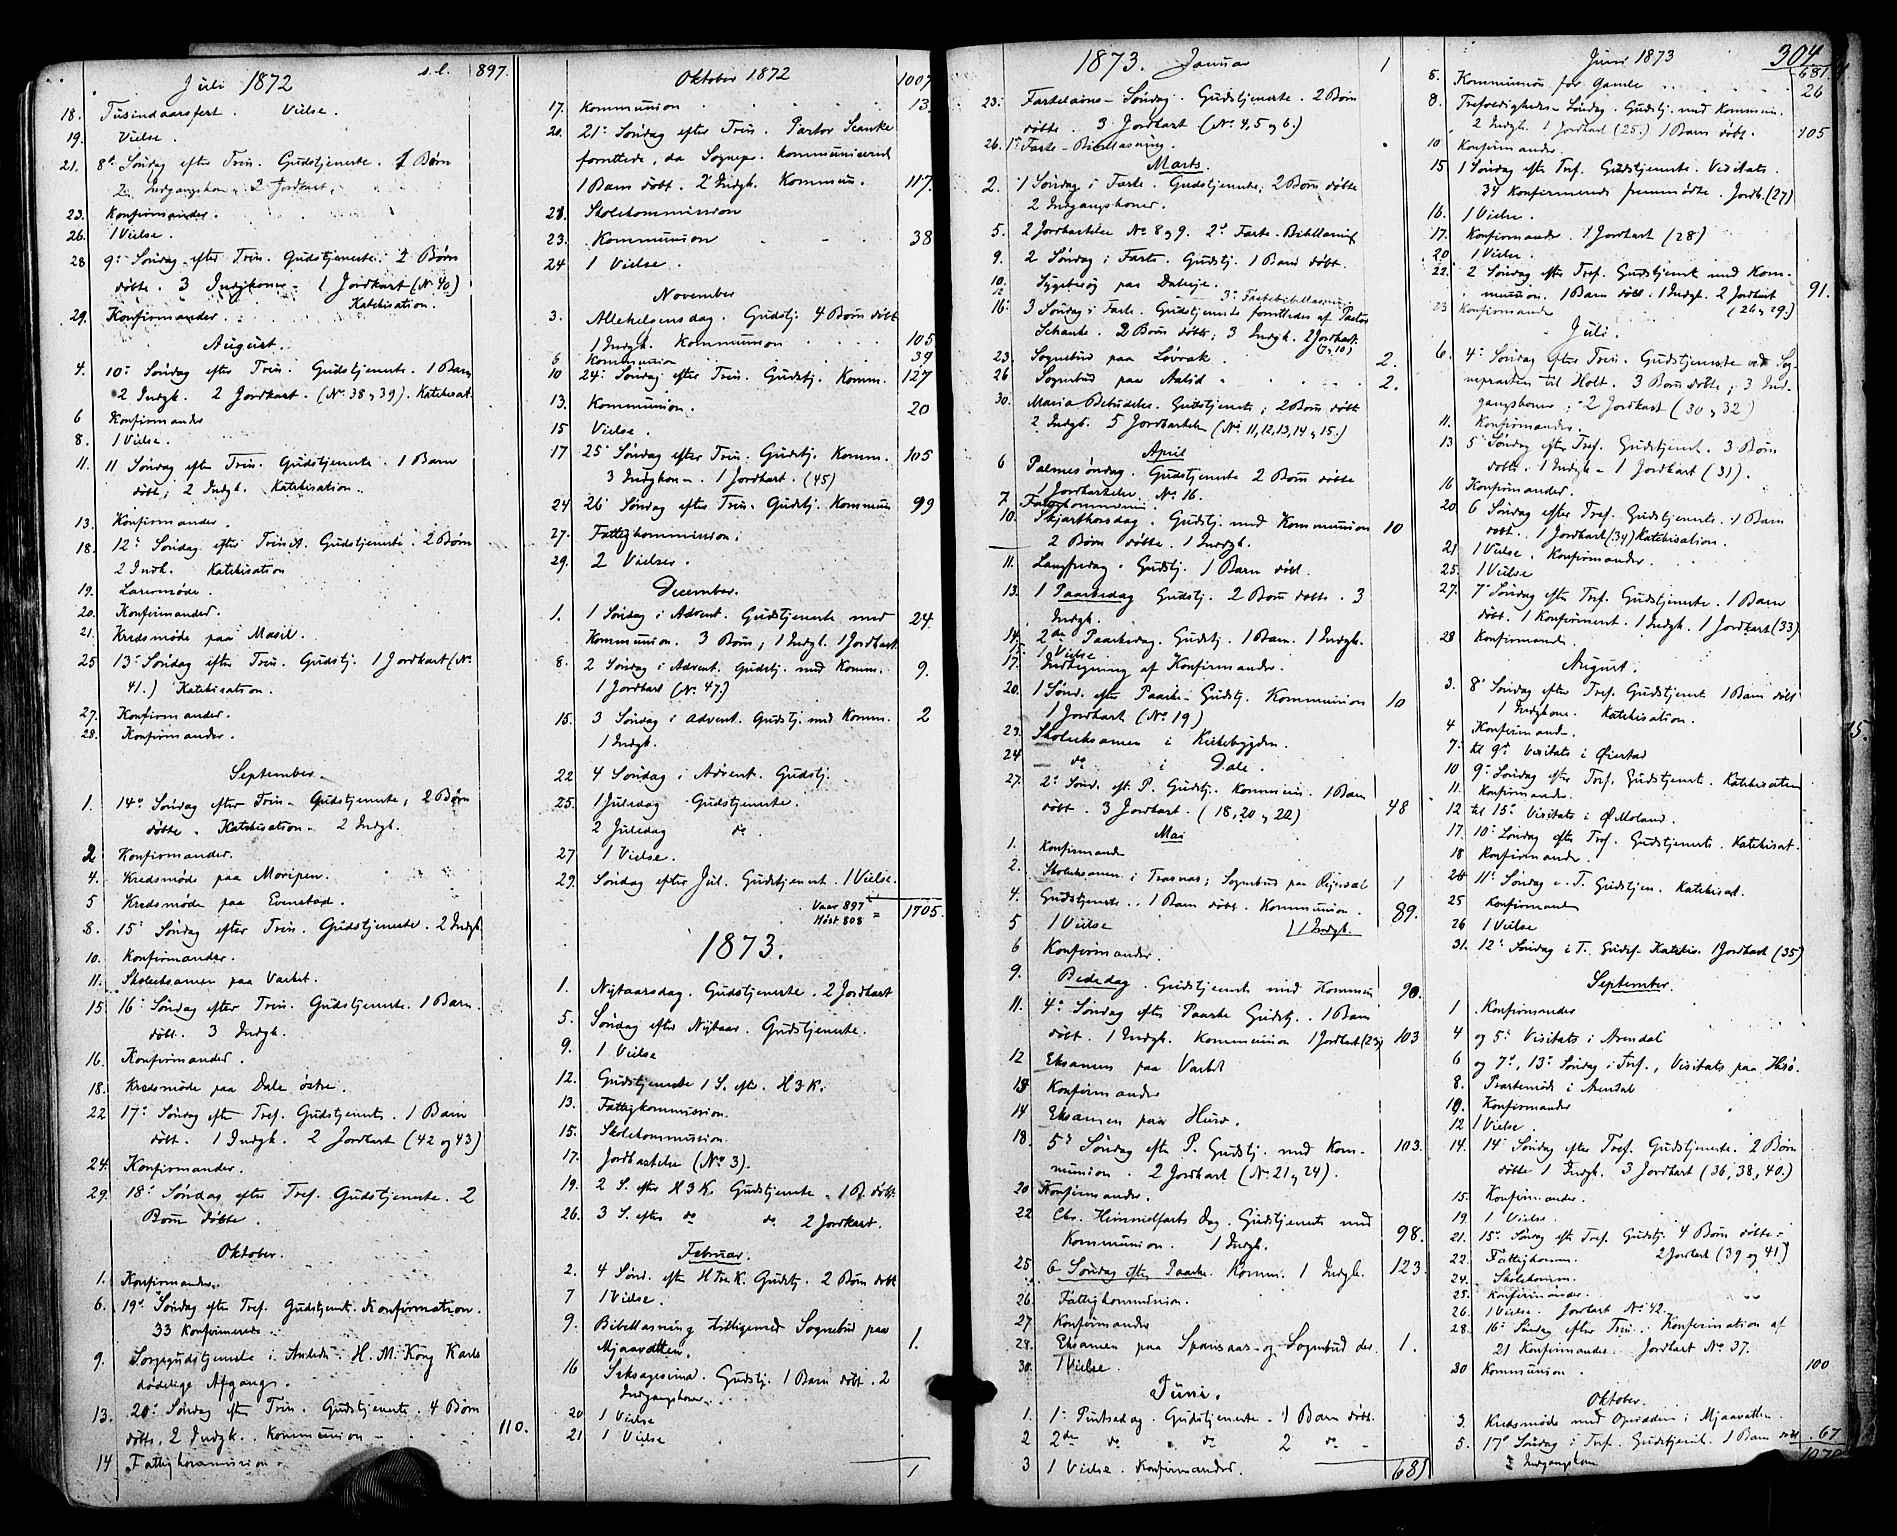 Juli 1872 s. l. 897.
18. Tusindaarsfest. Vielse.
19. Vielse.
21. 8de Søndag efter Trin. Gudstjeneste. 1 Børn
2 Indgangskon. 2 Jordkast.
23. Konfirmander.
26. 1 Vielse.
28 9de Søndag efter Trin. Gudstjeneste. 2 Børn
døbte. 3 Indgkoner. 1 Jordkast (No 40)
Katekisation.
29. Konfirmander.
August.
4. 10de Søndag efter Trin. Gudstjeneste. 1 Barn
2 Indgk. 2 Jordkast. (No. 38 og 39). Katekisat.
6 Konfirmander
8. 1 Vielse.
11. 11 Søndag efter Trin. Gudstjeneste. 1 Barn
døbt; 2 Indgk. Katekisation.
13. Konfirmander.
18. 12de Søndag efter Trinit. Gudstjeneste. 2 Børn
2 Indk. Katekisation
19. Lærermøde.
20. Konfirmander.
21. Kredsmøde paa Masil.
25 13de Søndag efter Trin. Gudstj. 1 Jordkast (No.
41.) Katekisation.
27. Konfirmander.
28. Konfirmander.
September.
1. 14de Søndag efter Trin. Gudstjeneste; 2 Børn
døbte. Katekisation. 2 Indgk.
2 Konfirmander.
4. Kredsmøde paa Moripen.
5 Kredsmøde paa Evenstad.
8. 15de Søndag efter Trin. Gudstjeneste. 2 Indgk
10. Konfirmander.
11. Skoleeksamen paa Varket.
15 16de Søndag efter Trin. Gudstjeneste. 1 Barn
døbt. 3 Indgk.
16. Konfirmander.
18. Kredsmøde paa Dale østre.
22 17de Søndag efter Tref. Gudstjeneste. 1 Barn
døbt. 1 Indgk. 2 Jordkast (42 og 43)
24. Konfirmander.
29. 18de Søndag efter Tref. Gudstjeneste. 2
Børn døbte.
Oktober.
1. Konfirmander.
6. 19de Søndag efter Tref. Gudstjenst. Konfirmation.
33 Konfirmerede.
9. Sørgegudstjeneste i Anledn. H. M. Kong Karls
dødelige Afgang.
13. 20de Søndag efter Trin. Gudstjeneste. 4 Børn
døbte, 2 Indgk. Kommunion 110.
14 Fattigkommission.
Oktober 1872 1007
17. Kommunion 13.
20. 21de Søndag efter Trin. Pastor Schanke
forrettede, da Sognepr. kommunicerede
1 Barn døbt. 2 Indgk. Kommun. 117.
21. Skolekommission
23. Kommunion 38
24 1 Vielse.
November
3. Allehelgensdag. Gudstj. 4 Børn døbt
1 Indgk. Kommunion 105
6 Kommunion 39
10 24de Søndag efter Trin. Gudstj. Komm. 127
13. Kommunion. 20
15 Vielse.
17 25de Søndag efter Trin. Gudstj. Komm. 105
3 Indgkon. 1 Jordkast. (45)
24 26 Søndag efter Trin. Gudstj. Kommun 99
27. Fattigkommission.
29. 2 Vielser.
December.
1. 1 Søndag i Advent. Gudstjeneste med 24.
Kommunion. 3 Børn, 1 Indgk. 1 Jordkast
8. 2 Søndag i Advent. Gudstj. med Komm. 9.
1 Jordkast (No. 47.)
15. 3 Søndag i Advent. Gudstj. med Komm. 2
1 Indgk.
22 4 Søndag i Advent. Gudstj.
25. 1 Juledag Gudstjeneste.
2 Juledag do
27 1 Vielse.
29. Søndag efter Jul. Gudstjenest. 1 Vielse.
Vaar 897
Høst 808 = 1705.
1873.
1. Nytaarsdag. Gudstjeneste. 2 Jordkast
5. Søndag efter Nytaar. Gudstjeneste.
9. 1 Vielse
12. Gudstjeneste 1 S. eft. H 3 K.
13. Fattigkommission.
15. Skolekommission.
17. Jordkastelse (No 3).
19. 2 S. efter H 3 K. Gudstjeneste. 1 B. døbt.
26. 3 S. efter do do. 2 Jordkast.
Februar.
2. 4 Sønd. efter H tre K. Gudstj. 2 Børn døbt
7 1 Vielse.
9. Bibellæsning tilligemed Sognebud paa
Mjaavatten. 1.
16 Seksagesima. Gudstj. 1 Barn døbt. 2
Indgangskoner.
20 1 Vielse
21 1 Vielse
1
1873. Januar 1
23. Fastelavns-Søndag. Gudstjeneste. 2 Børn
døbte. 3 Jordkast (No. 4, 5 og 6.)
26. 1ste Faste-Bibellæsning.
Marts.
2. 1 Søndag i Faste. Gudstjeneste; 2 Børn døbte
2 Indgangskoner.
5. 2 Jordkastelser No 8 og 9. 2den Faste-Bibellæsning
9. 2 Søndag i Faste. Gudstj. 1 Barn døbt.
10. Sygebesøg paa Daleøje.
12 3de Fastebibellæsning.
16. 3 Søndag i Faste. Gudstjeneste forrettedes af Pastor
Schanke. 2 Børn døbte; 3 Indgk. 2 Jordkast.
(7 og 10)
23. Sognebud paa Løvrak. 2.
26 Sognebud paa Aalid 2.
30. Maria Bebudelse. Gudstjeneste; 2 Børn døbt
2 Indgk. 5 Jordkastelser (No. 11, 12, 13, 14 og 15.)
April
6 Palmesøndag. Gudstjeneste 2 Børn døbte
1 Jordkastelse. No 16.
7. Fattigkommission.
10. Skjærthorsdag. Gudstj. med Kommunion 10
2 Børn døbte. 1 Indgk.
11. Langfredag. Gudstj. 1 Barn døbt.
13. 1 Paaskedag Gudstj. 2 Børn døbte. 3
Indgk.
14. 2den Paaskedag. Gudstj. 1 Barn. 1 Indgk.
15. 1 Vielse
17. Indtegning af Konfirmander.
20. 1 Sønd. efter Paaske. Gudstj. Kommunion 10
1 Jordkast (No 19)
23. Skoleeksamen i Kirkebygden.
24 do i Dale.
27. 2den Sønd. eft. P. Gudstj. Kommun. 1 Barn
døbt. 3 Jordkast. (18, 20 og 22) 48
Mai
1. Konfirmand
2. Skoleeksamen i Trasnæs; Sognebud paa Rejersdal 1
4. Gudstjeneste. 1 Barn døbt. Kommunion. 89.
5 1 Vielse 1 Indgk.
6 Konfirmander.
9. Bededag. Gudstjeneste med Kommun 90.
11. 4de Søndag efter Paaske Gudstj. 1 Barn
døbt. 1 Indgk. Kommunion 1 Jordkast (23) 103
12 Eksamen paa Varket
13 Konfirmander
14 Eksamen paa Hurv.
18. 5te Søndag eft P. Gudstj. med Kom- 103.
munion. 2 Jordkast (No. 21 og 24).
20 Konfirmander.
22 Chr. Himmelfarts Dag. Gudstjeneste med
Kommunion. 1 Indgk. 98.
25 6 Søndag efter Paaske. Komm. 1 Indgk. 123.
26. Fattigkommission.
27 Konfirmander
28. Eksamen paa Spansaas og Sognebud der 1.
30. 1 Vielse.
Juni.
1. 1ste Pintsedag. Gudstjeneste. 1 Barn døbt.
2 2den do do 2 do
3 1 Vielse. Konfirmander.
681
Juni 1873 304
681
5. Kommunion for Gamle 26
8. Trefoldigheds-Søndag. Gudstj. med Kommun.
2 Indgk. 1 Jordkast (25.) 1 Barn døbt. 105
10 Konfirmander.
15 1 Søndag efter Tref. Gudstjeneste. Visitats.
34 Konfirmerede fremmødte. Jordk. (27)
16. 1 Vielse.
17. Konfirmander. 1 Jordkast (28)
20 1 Vielse.
22. 2 Søndag efter Tref. Gudstjenest med Kom-
munion. 1 Barn døbt. 1 Indgk. 2 Jordkast 91.
23 Konfirmande (26 og 29.)
Juli.
6. 4de Søndag efter Trin. Gudstjeneste ved Sog-
nepresten til Holt. 3 Børn døbte; 3 Ind-
gangskoner; 2 Jordkast (30 og 32)
11. Konfirmander.
13 5te Søndag efter Tref. Gudstjenest. 3 Børn
døbte. 1 Indgk. 1 Jordkast (31).
16 Konfirmander.
20 6 Søndag efter Tref. Gudstjeneste. 1 Barn
døbt. 1 Jordkast (34) Katekisation.
21 1 Vielse. Konfirmander.
25. 1 Vielse
27. 7 Søndag efter Tref. Gudstjeneste. 1 Barn
døbt. 1 Konfirment. 1 Indgk. 1 Jordkast (33)
28 Konfirmande
August.
3. 8de Søndag efter Tref. Gudstjenest 1 Barn døbt
1 Indgkone. Katekisation.
4 Konfirmand.
7. til 9de Visitats i Øiestad
10 9de Søndag efter Tref. Gudstjenest. Katekisation
11. Konfirmander.
12 til 15de Visitats i Ø Moland.
17. 10de Søndag efter Tref. Gudstjeneste. Katekisat.
18 Konfirmander.
24 11te Søndag e. T. Gudstjen. Katekisat.
25 Konfirmand
26 1 Vielse
31. 12te Søndag i T. Gudst. Katekis. 1 Jordkast (35)
September.
1 Konfirmander
4 og 5te Visitats i Arendal
6 og 7de, 13de Søndag i Tref., Visitats paa Hisø.
8. Prestemøde i Arendal
10. Konfirmander
12 1 Vielse
14. 14de Søndag efter Tref. Gudstjeneste. 2 Børn
døbte 1 Indgk. 3 Jordkast (36, 38, 40.)
15. Konfirmander.
19. 1 Vielse.
21. 15de Søndag efter Tref. Gudstj. 4 Børn døbte.
22. Fattigkomm. 2 Jordkast (39 og 41)
24. Skolekomm.
25. Konfirmander.
26. 1 Vielse. Jordkast No. 42.
28. 16de Søndag efter Trin. Konfirmation af
21 Konfirmander. Jordkast No 37.
30 Kommunion. 100
Oktober.
3. Kredsmøde med Opsidden i Mjaavatten.
5. 17de Søndag i Tref. Gudstjenest. 1 Barn døbt 67
2 Indgangskon
1070